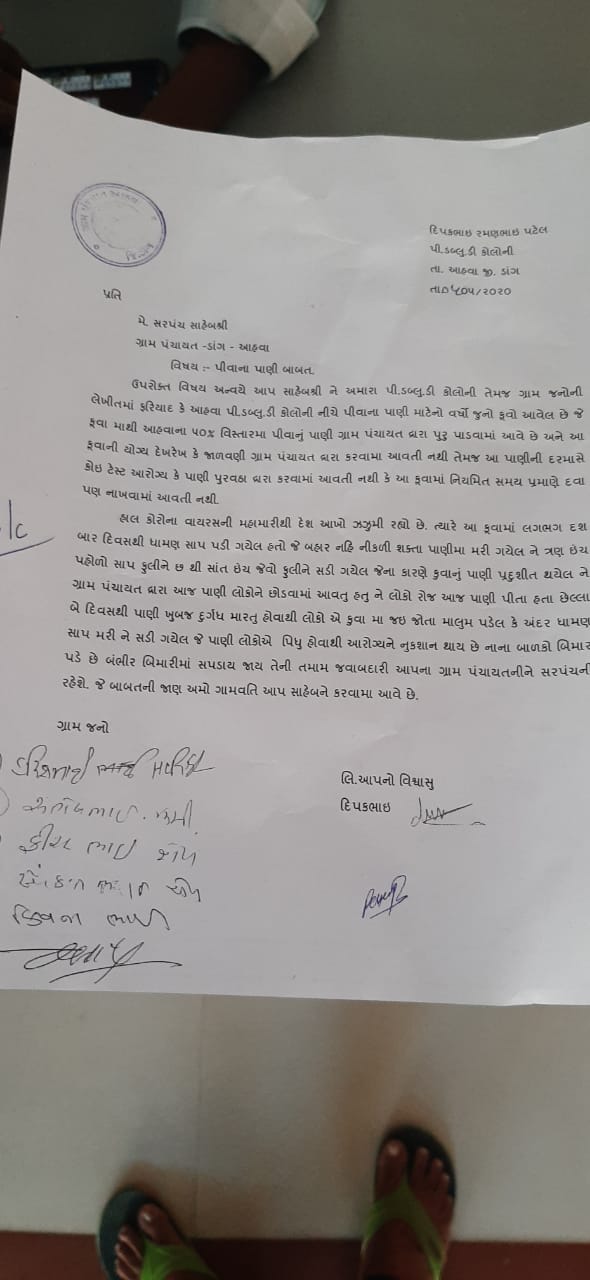 દિપકભાઇ રમણભાઇ પટેલ
પી.ડબ્લુ.ડી કોલોની
તા. આહવા જી. ડાંગ
પ્રતિ
મે. સરપંચ સાહેબશ્રી
ગ્રામ પંચાયત -ડાંગ - આહવા
વિષય :- પીવાના પાણી બાબત.
ઉપરોક્ત વિષય અન્વયે આપ સાહેબશ્રી ને અમારા પી.ડબ્લુ.ડી કોલોની તેમજ ગ્રામ જનોની
લેખીતમાં ફરિયાદ કે આહવા પી.ડબ્લુ.ડી કોલોની નીચે પીવાના પાણી માટેનો વર્ષો જુનો કુવો આવેલ છે જે
કુવા માથી આહવાના ૫૦% વિસ્તારમા પીવાનું પાણી ગ્રામ પંચાયત દ્રારા પુરૂ પાડવામાં આવે છે અને આ
કુવાની યોગ્ય દેખરેખ કે જાળવણી ગ્રામ પંચાયત દ્રારા કરવામા આવતી નથી તેમજ આ પાણીની દરમાસે
કોઇ ટેસ્ટ આરોગ્ય કે પાણી પુરવઠા દ્રારા કરવામાં આવતી નથી કે આ કુવામાં નિયમિત સમય પ્રમાણે દવા
પણ નાખવામાં આવતી નથી.
હાલ કોરોના વાયરસની મહામારીથી દેશ આખો ઝઝુમી રહ્યો છે. ત્યારે આ કુવામાં લગભગ દશ
બાર દિવસથી ધામણ સાપ પડી ગયેલ હતો જે બહાર નહિ નીકળી શક્તા પાણીમા મરી ગયેલ ને ત્રણ ઇંચ
પહોળો સાપ ફુલીને છ થી સાંત ઇંચ જેવો ફુલીને સડી ગયેલ જેના કારણે કુવાનું પાણી પ્રદુશીત થયેલ ને
ગ્રામ પંચાયત દ્રારા આજ પાણી લોકોને છોડવામાં આવતુ હતુ ને લોકો રોજ આજ પાણી પીતા હતા છેલ્લા
બે દિવસથી પાણી ખુબજ દુર્ગધ મારતુ હોવાથી લોકો એ કુવા મા જઇ જોતા માલુમ પડેલ કે અંદર ધામણ
સાપ મરી ને સડી ગયેલ જે પાણી લોકોએ પિધુ હોવાથી આરોગ્યને નુકશાન થાય છે નાના બાળકો બિમાર
પડે છે બંભીર બિમારીમાં સપડાય જાય તેની તમામ જવાબદારી આપના ગ્રામ પંચાયતનીને સરપંચની
રહેશે. જે બાબતની જાણ અમો ગામવતિ આપ સાહેબને કરવામા આવે છે.
ગ્રામ જનો
લિ.આપનો વિશ્વાસુ
દિપકભાઇ